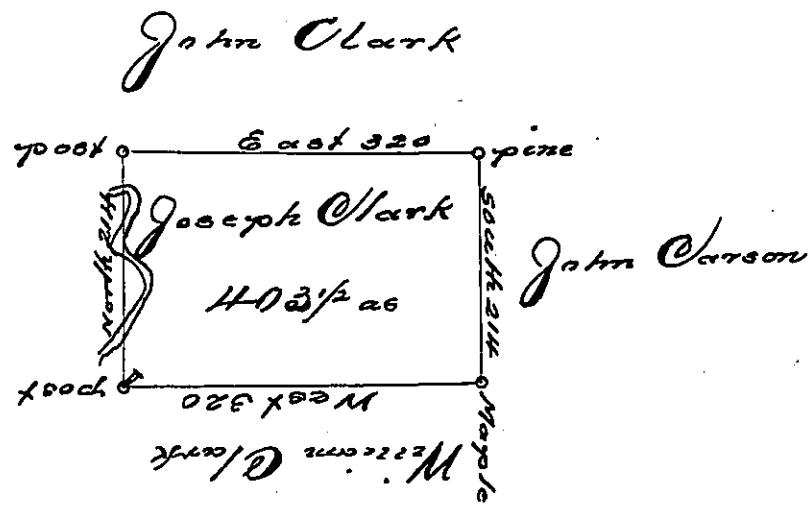 John Clark
post
East 320
pine
North 214
Joseph Clark
South 214
John Carson
403 1/2 as
post
West 320
Maple
William Clark